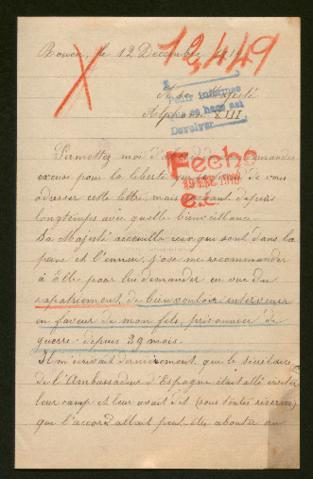 Rouen, le 12 Décembre
12,449
A Sa Majesté
Alphonse XIII
Pour informes
que se hace así
Devolver
Permettez moi d'abord de demander
excuse pour la liberté que je prends de vous
adresser cette lettre, mais sachant depuis
longtemps avec quelle bienveillance
Sa Majesté accueille ceux qui sont dans la
peine et l'ennui, j'ose me recommander
à Elle pour lui demander en vue du
rapatriement de bien vouloir intervenir
en faveur de mon fils, prisonnier de
guerre depuis 39 mois.
Il m'écrivait dernièrement que le secrétaire
de l'Ambassadeur d'Espagne était allé visiter
leur camp et leur avait dit (sous toutes réserves)
que l'accord allait peut-être aboutir au
Fecho